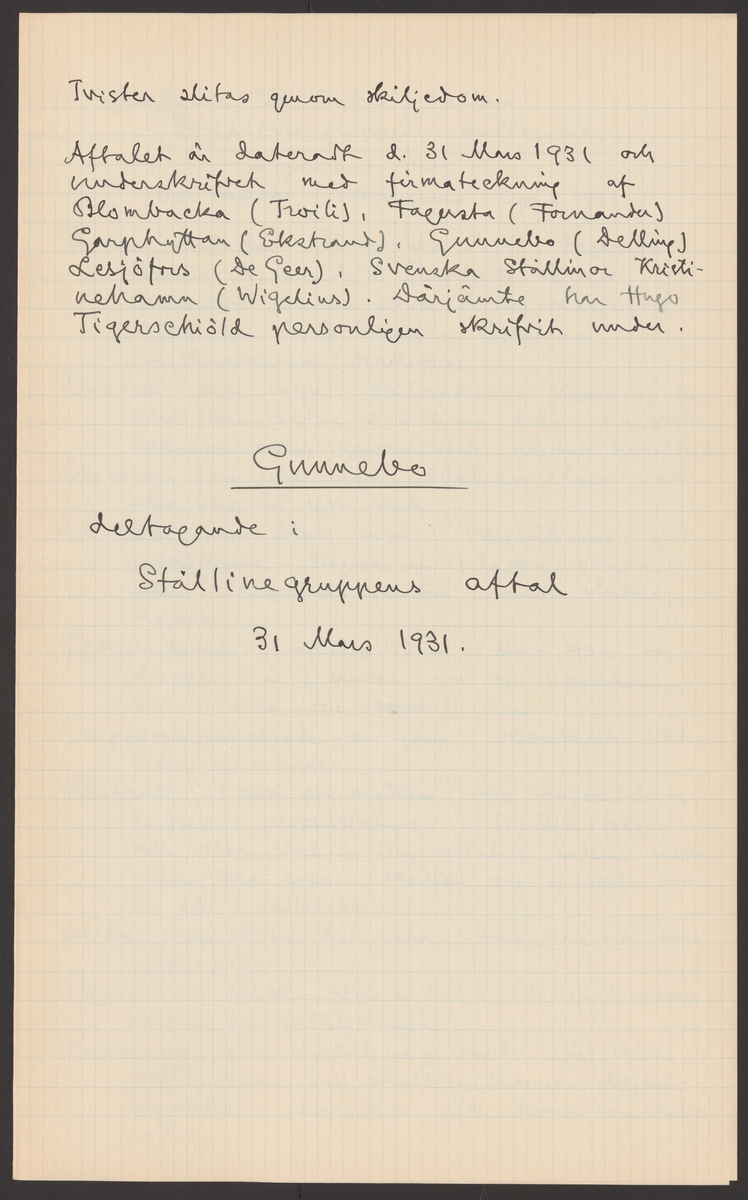 Tvister slitas genom skiljedom.
Aftalet är dateradt d. 31 Mars 1931 och
underskrifvet med firmateckning af
Blombacka (Troili), Fagersta (Fornander)
Garphyttan (Ekstrand), Gunnebo (Delling)
Lesjöfors (De Geer), Svenska Stållinor Kristi-
nehamn (Wigelius). Därjämte har Hugo
Tigerschiöld personligen skrifvit under.
Gunnebo
deltagande i
Stållinegruppens aftal
31 Mars 1931.